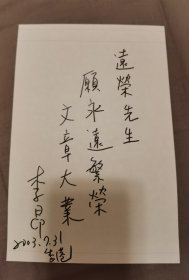 遠榮先生
願永遠繁榮
文章大業
李昂
2003.7.31